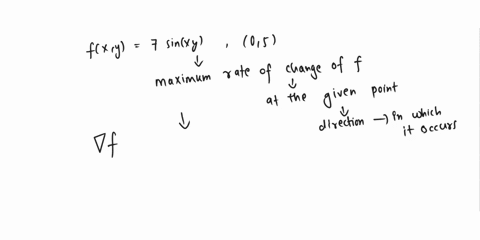 f(x,y) = 7 sin(xy) , (0,5)
↓
maximum rate of change of f
↓
at the given point
↓
direction → in which
it occurs
↓
∇f